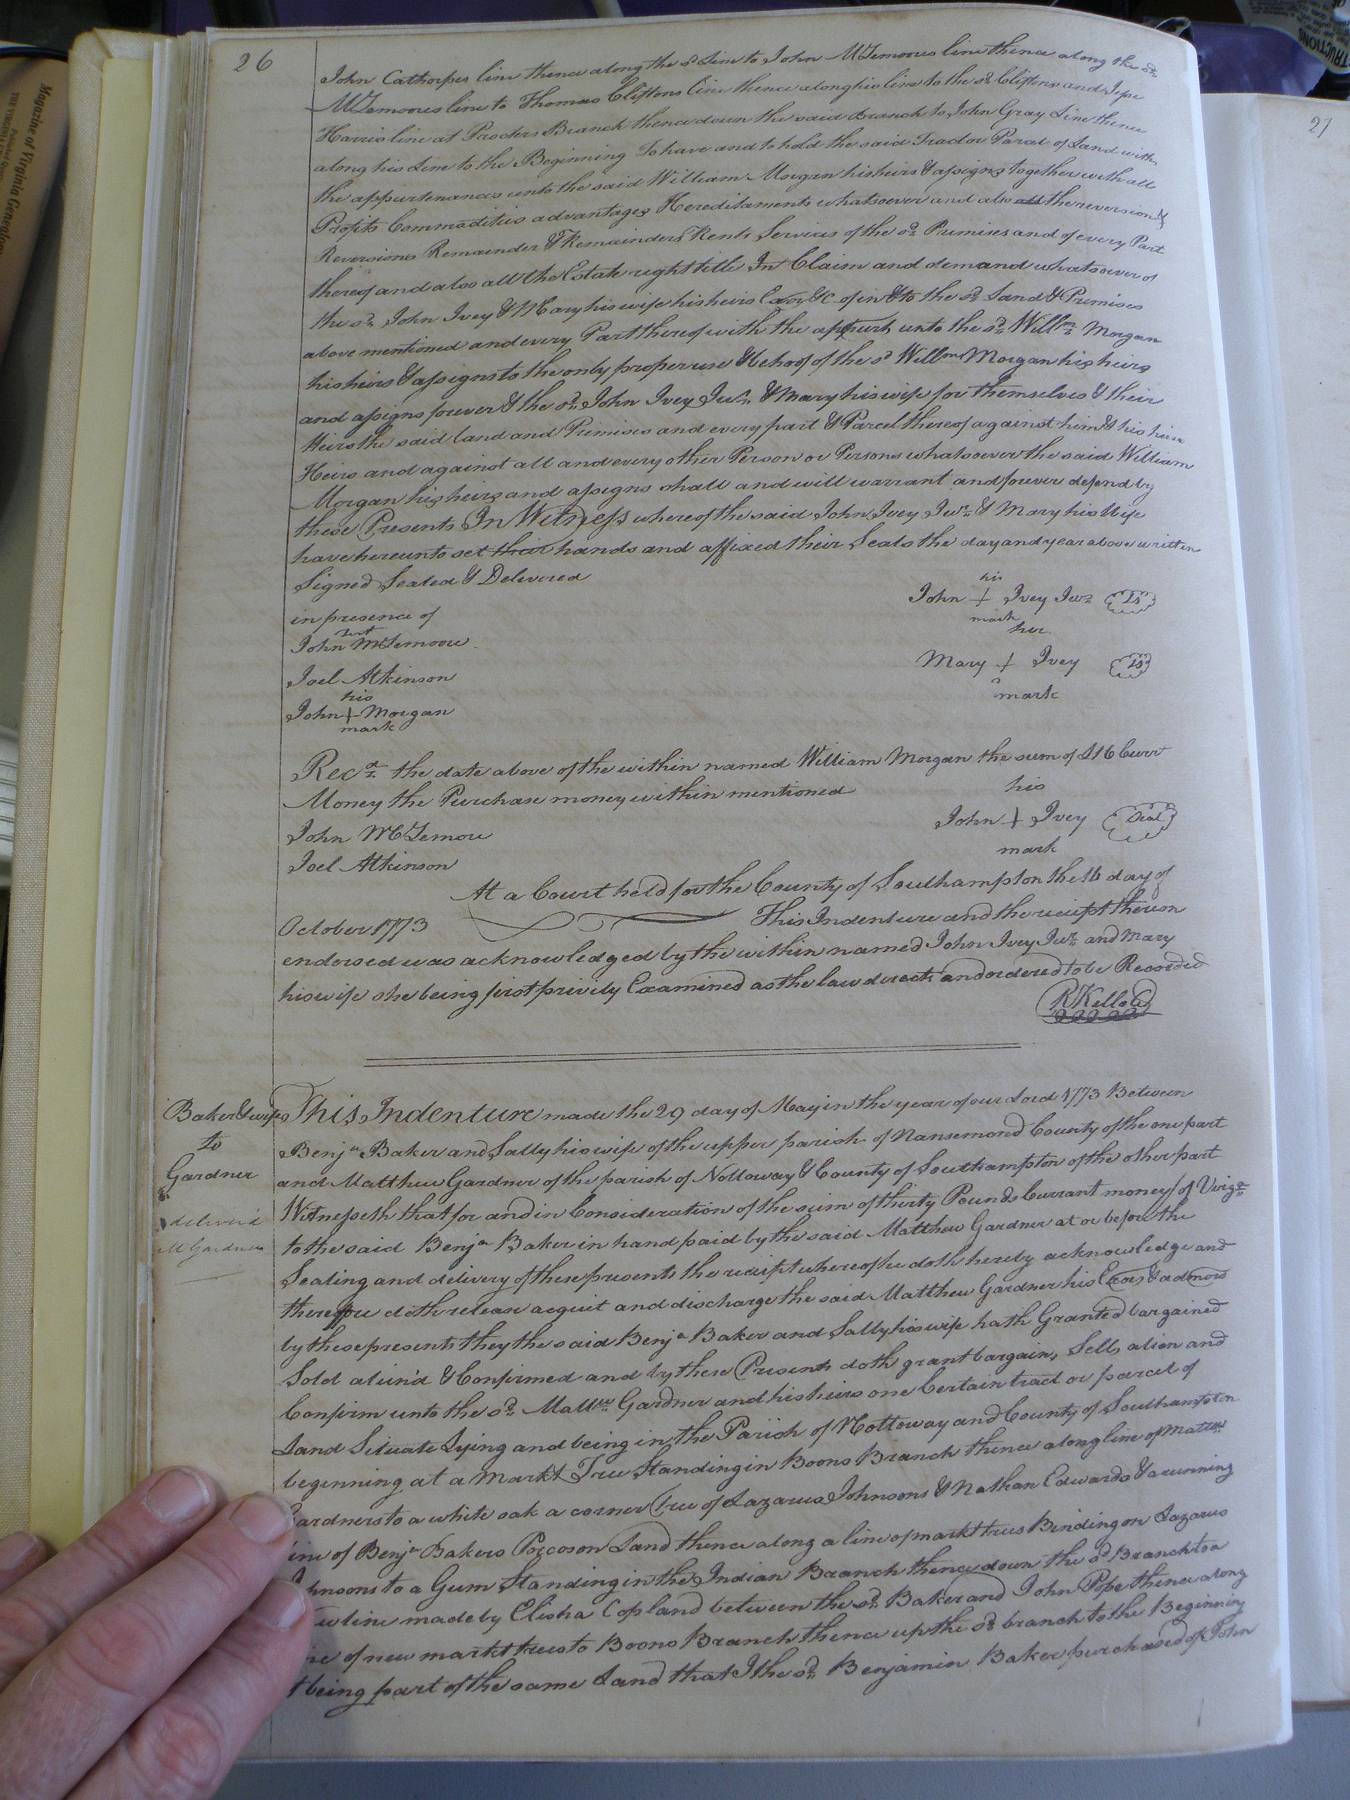 26
John Cathorpes line thence along the sd. Line to John McLemoores line thence along the sd.
McLemoores line to Thomas Cliftons line thence along his line to the sd. Cliftons and Jepe
Harris line at Proctors Branch thence down the said Branch to John Gray Line thence
along his Line to the Beginning To have and to hold the said Tract or Parcel of Land with
the appurtenances unto the said William Morgan his heirs & assigns together with all
Profits Commodities advantages Hereditaments whatsoever and also all the reversion &
Reversions Remainder & Remainders Rents Services of the sd. Premises and of every Part
thereof and also all the Estate right title In Claim and demand whatsoever of
the sd. John Ivey & Mary his wife his heirs Exors &C of in & to the sd. Land & Premises
above mentioned and every Part thereof with the appurts unto the sd. Willm. Morgan
his heirs & assigns to the only proper use & behoof of the sd Willm Morgan his heirs
and assigns forever & the sd. John Ivey Junr. & Mary his wife for themselves & their
Heirs the said land and Primises and every part & Parcel thereof against him & his heirs
Heirs and against all and every other Person or Persons whatsoever the said William
Morgan his heirs and assigns shall and will warrant and forever defend by
these Presents In Witness whereof the said John Ivey Junr. & Mary his Wife
have hereunto set their hands and affixed their Seals the day and year above written
Signed Sealed & Delivered
in presence of
his
John + Ivey Junr. LS
mark
John McLemoore
her
Mary + Ivey LS
mark
Joel Atkinson
his
John + Morgan
mark
Recd. the date above of the within named William Morgan the sum of £16 Currt
Money the Purchase money within mentioned
his
John McLemore
John + Ivey Seal
mark
Joel Atkinson
At a Court held for the County of Southampton the 14 day of
October 1773 This Indenture and the receipt thereon
endorsed was acknowledged by the within named John Ivey Junr. and Mary
his wife she being first privily Examined as the law directs and ordered to be Recorded
RKello
Baker & wife
to
Gardner
deliver'd
M Gardner
This Indenture made the 29 day of May in the year of our Lord 1773 Between
Benjn. Baker and Sally his wife of the upper parish of Nansemond County of the one part
and Matthew Gardner of the parish of Nottoway & County of Southampton of the other part
Witnesseth that for and in Consideration of the sum of thirty Pounds Currant money of Virga.
to the said Benjn Baker in hand paid by the said Matthew Gardner at or before the
Sealing and delivery of these presents the receipt whereof he doth hereby acknowledge and
therefore doth release acquit and discharge the said Matthew Gardner his Exors & admors
by these presents they the said Benjn Baker and Sally his wife hath Granted bargained
Sold alien'd & Confirmed and by these Presents doth grant bargain, Sell, alien and
Confirm unto the sd. Mattw Gardner and his heirs one Certain tract or parcel of
Land Situate Lying and being in the Parish of Nottoway and County of Southampton
beginning at a Markt Tree Standing in Boons Branch thence along line of Mattw
Gardners to a white oak a corner tree of Lazarus Johnsons & Nathan Edwards & a running
line of Benjn Bakers Porcoson Land thence along a line of markt trees Binding on Lazarus
Johnsons to a Gum Standing in the Indian Branch thence down the sd. Branch to a
line made by Elisha Copland between the sd. Baker and John Pope thence along
of new markt trees to Boons Branch thence up the sd. branch to the Beginning
being part of the same Land that I the sd. Benjamin Baker purchased of John
27
Magazine of Virginia Genealogy